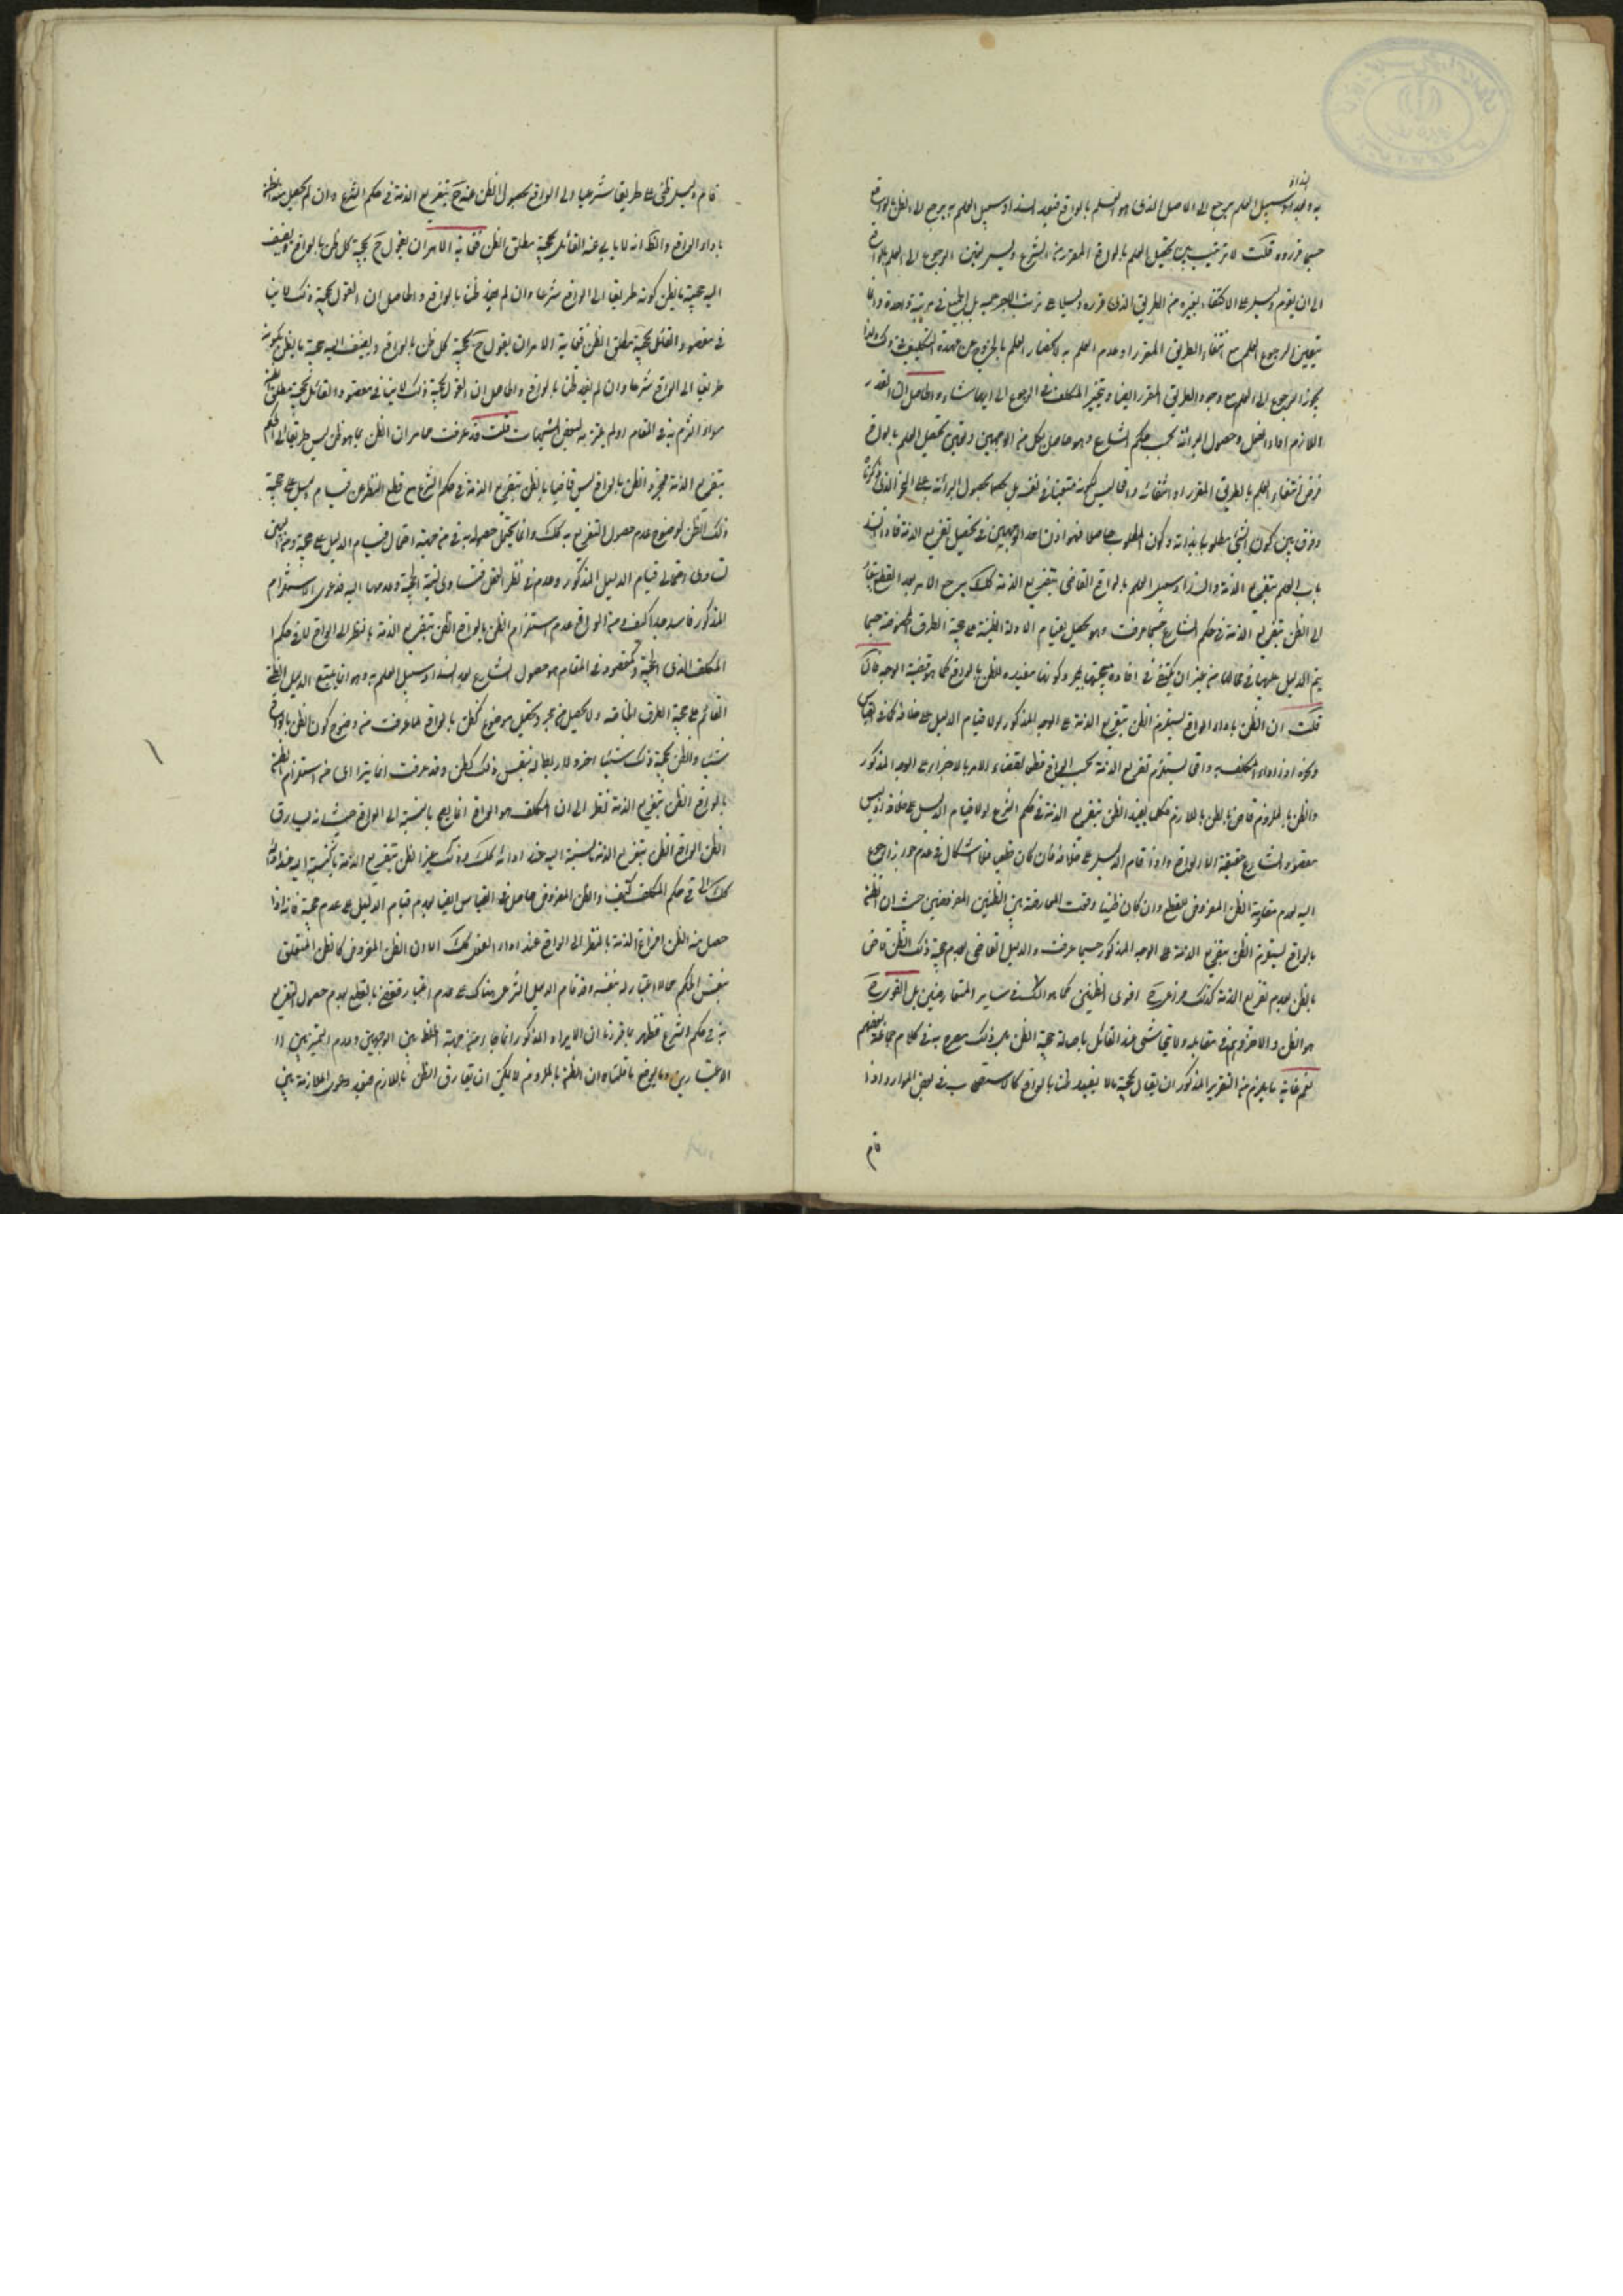 انسداد
به وبعد انسداد سبيل العلم يرجع الى الاصل الذى هو العلم بالواقع فبعد انسداد سبيل العلم به يرجع الى الظن بالواقع
حسبما قرروه قلت لا ترتيب بين تحصيل العلم بالواقع والمقرر من الشرع وليس تعين الرجوع الى العلم بالواقع
الى ان يقوم دليل على الاكتفاء بغيره من الطريق الذى قرره دليلا على ترتب بل الجميع فى مرتبة واحدة وانما
يتعين الرجوع العلم مع انتفاء الطريق المقرر او عدم العلم به لانحصار العلم بالخروج عن عهدة التكليف فى ذلك ولذا
يجوز الرجوع الى العلم مع وجود الطريق المقرر ايضا ويتخير المكلف فى الرجوع الى ايهما شاء والحاصل ان القدر
اللازم اداء الفعل وحصول البرائة بحسب حكم الشارع وهو حاصل بكل من الوجهين وتعين تحصيل العلم بالواقع
فرض انتفاء العلم بالطريق المقرر او انتفائه واقعا ليس لكونه متعينا فى نفسه بل لحصول البرائة به على النحو الذى ذكرناه
وفرق بين كون الشئ مطلوبا بذاته وكون المطلوب حاصلا فهو اذن احد الوجهين فى تحصيل تفريغ الذمة فاذا انسد
باب العلم بتفريغ الذمة وانسد سبيل العلم بالواقع القاضى بتفريغ الذمة كك يرجع الامر بعد القطع ببقاء
الى الظن بتفريغ الذمة فى حكم الشارع حسبما عرفت وهو يحصل بقيام الادلة الظنية على حجية الطرق المخصوصة حسبما
يتم الدليل عليها فى محالها من غير ان يكتفى فى افادة حجيتها بمجرد كونها مفيدة للظن بالواقع كما هو قضية الوجه
قلت ان الظن باداء الواقع يستلزم الظن بتفريغ الذمة على الوجه المذكور لولا قيام الدليل على خلافه كما فى القياس
ونحوه اذ اداء المكلف به واقعا يستلزم تفريغ الذمة بحسب الواقع قطعا لقضاء الامر بالاجزاء على الوجه المذكور
والظن بالملزوم قاض بالظن باللازم فكلما يفيد الظن بتفريغ الذمة فى حكم الشرع لولا قيام الدليل على خلافه اذ ليس
مقصود الشارع حقيقة الا الواقع واذا قام الدليل على خلافه فان كان قطعيا فلا اشكال فى عدم جواز الرجوع
اليه لعدم مقاومة الظن المفروض للقطع وان كان ظنيا وقعت المعارضة بين الظنين المفروضين حيث ان الظن
بالواقع يستلزم الظن بتفريغ الذمة على الوجه المذكور حسبما عرفت والدليل القاضى بعدم حجية ذلك الظن قاض
بالظن بعدم تفريغ الذمة كذلك فيراعى ح اقوى الظنين كما هو الشأن فى ساير المتعارضين بل القوى ح
هو الظن والاخر وهم فى مقابله ولا يتحاشى عنه القائل باصالة حجية الظن بل ذلك مصرح به فى كلام جماعة منهم
نعم غاية ما يلزم من التقرير المذكور ان يقال بحجية ما لا يفيد ظنا بالواقع كالاستصحاب فى بعض الموارد اذا
قام
قام دليل ظنى على طريقا شرعيا الى الواقع لحصول الظن عنه ح بتفريغ الذمة فى حكم الشرع وان لم يحصل منه الظن
باداء الواقع والظ انه لا يابى عنه القائل بحجية مطلق الظن فغاية الامر ان يقول ح بحجية كل ظن بالواقع ويضيف
اليه حجية ما يظن كونه طريقا الى الواقع شرعا وان لم يفد ظنا بالواقع والحاصل ان القول بحجية ذلك لا ينافى
فى مقصود القائل بحجية مطلق الظن فغاية الامر ان يقول ح بحجية كل ظن بالواقع ويضيف اليه حجية ما يظن كونه
طريقا الى الواقع شرعا وان لم يفد ظنا بالواقع والحاصل ان القول بحجية ذلك لا ينافى مقصود القائل بحجية مطلق الظن
سواء التزم به فى المقام او لم يلتزم به لبعض الشبهات قلت قد عرفت مما مر ان الظن بما هو ظن ليس طريقا الى الحكم
بتفريغ الذمة فمجرد الظن بالواقع ليس قاضيا بالظن بتفريغ الذمة فى حكم الشرع مع قطع النظر عن قيام دليل على حجية
ذلك الظن لوضوح عدم حصول التفريغ به كك وانما يحتمل حصوله به فى من جهة احتمال قيام الدليل على حجيته ومن البين
تساوى احتمالى قيام الدليل المذكور وعدمه فى نظر العقل فتساوى نسبة الحجية وعدمها اليه فدعوى الاستلزام
المذكور فاسد جدا كيف ومن الواضح عدم استلزام الظن بالواقع الظن بتفريغ الذمة بالنظر الى الواقع لا فى حكم
المكلف الذى الحجية والمقصود فى المقام هو حصول الشارع بعد انسداد سبيل العلم به وهو انما يتبع الدليل الظنى
القائم على حجية الطرق الخاصة ولا يحصل من مجرد تحصيل موضوع الظن بالواقع لما عرفت من وضوح كون الظن بالواقع
شيئا والظن بحجية ذلك شيئا اخر ولا ربط له بنفس ذلك الظن وقد عرفت ان ما يترا اى من استلزام الظن
بالواقع الظن بتفريغ الذمة نظرا الى ان المكلف هو الواقع انما هو بالنسبة الى الواقع حيث انه يساوق
الظن الواقع الظن بتفريغ الذمة بالنسبة اليه عند ادائه كك وذلك غير الظن بتفريغ الذمة بالنسبة اليه عند ادائه
كك فى حكم المكلف كيف والظن المفروض حاصل فى القياس ايضا بعدم قيام الدليل على عدم حجيته فانه اذا
حصل منه الظن افراغ الذمة بالنظر الى الواقع عند اداء الفعل كك الا ان الظن المفروض كالظن المتعلق
بنفس الحكم مما لا اعتبار له بنفسه وقد قام الدليل الشرعى هناك على عدم اعتباره فيقطع بعدم حصول التفريغ
به فى حكم الشرع فظهر بما قررنا ان الايراد المذكور انما جاء من جهة الخلط بين الوجهين وعدم التميز بين
الاعتبارين وما يوضح ما قلناه ان الظن بالملزوم لا يمكن ان يفارق الظن باللازم فبعد دعوى الملازمة بين